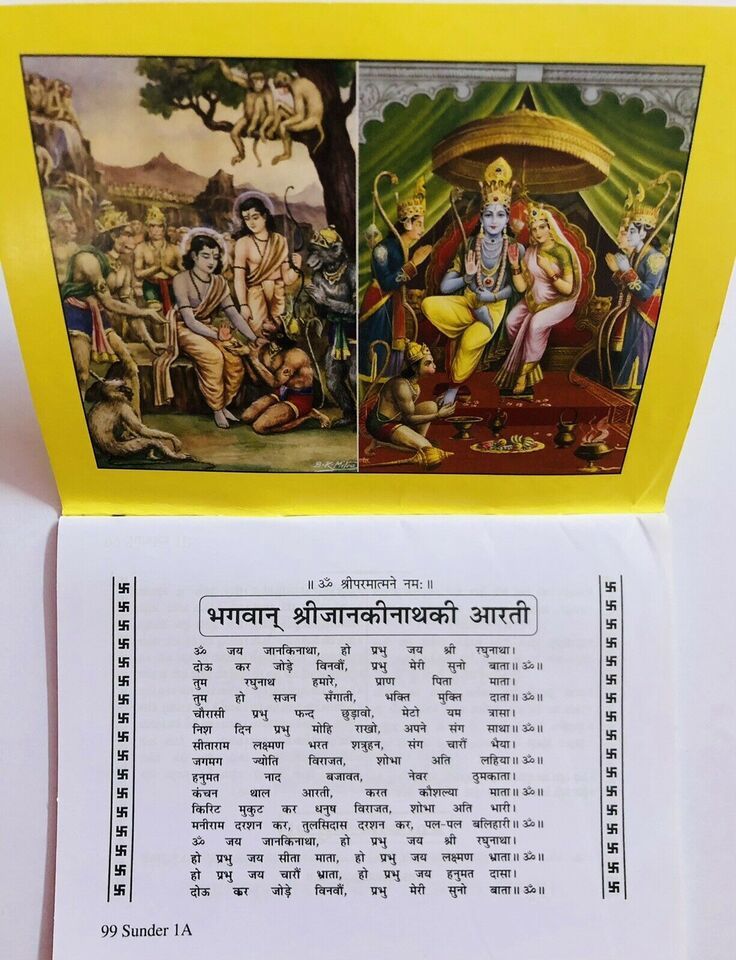 B.K. Mitra
॥ ॐ श्रीपरमात्मने नमः॥
भगवान् श्रीजानकीनाथकी आरती
ॐ जय जानकिनाथा, हो प्रभु जय श्री रघुनाथा।
दोऊ कर जोड़े विनवौं, प्रभु मेरी सुनो बाता॥ ॐ॥
तुम रघुनाथ हमारे, प्राण पिता माता।
तुम हो सजन सँगाती, भक्ति मुक्ति दाता॥ ॐ॥
चौरासी प्रभु फन्द छुड़ावो, मेटो यम त्रासा।
निश दिन प्रभु मोहि राखो, अपने संग साथा॥ ॐ॥
सीताराम लक्ष्मण भरत शत्रुहन, संग चारौं भैया।
जगमग ज्योति विराजत, शोभा अति लहिया॥ ॐ॥
हनुमत नाद बजावत, नेवर ठुमकाता।
कंचन थाल आरती, करत कौशल्या माता॥ ॐ॥
किरिट मुकुट कर धनुष विराजत, शोभा अति भारी।
मनीराम दरशन कर, तुलसिदास दरशन कर, पल-पल बलिहारी॥ ॐ॥
ॐ जय जानकिनाथा, हो प्रभु जय श्री रघुनाथा।
हो प्रभु जय सीता माता, हो प्रभु जय लक्ष्मण भ्राता॥ ॐ॥
हो प्रभु जय चारौं भ्राता, हो प्रभु जय हनुमत दासा।
दोऊ कर जोड़े विनवौं, प्रभु मेरी सुनो बाता॥ ॐ॥
99 Sunder 1A